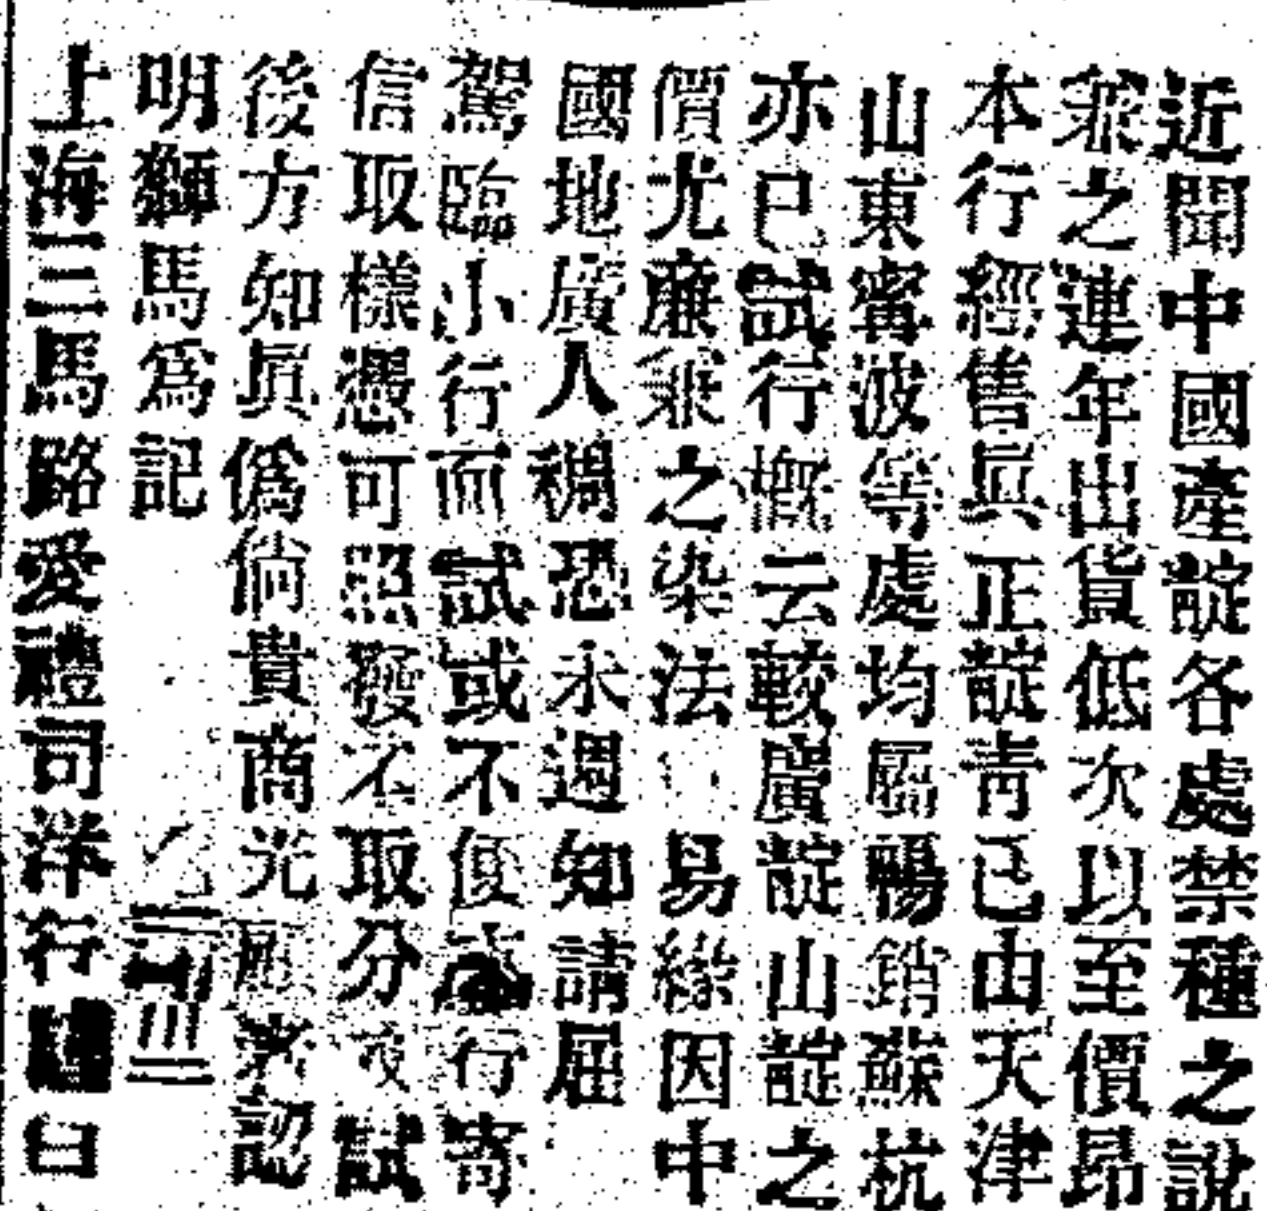 近聞中國產靛各處禁種之說
兼之連年出貨低次以至價昂
本行經售眞正靛青已由天津
山東甯波等處均屬暢銷蘇杭
亦已試行概云較廣靛山靛之
價尤廉兼之染法 易緣因中
國地廣人稠恐未週知請屈
駕臨小行而試或不便 行寄
信取樣憑可照發不取分文試
後方知眞偽倘貴商光顧者認
明獅馬為記
上海三馬路愛禮司洋行 白